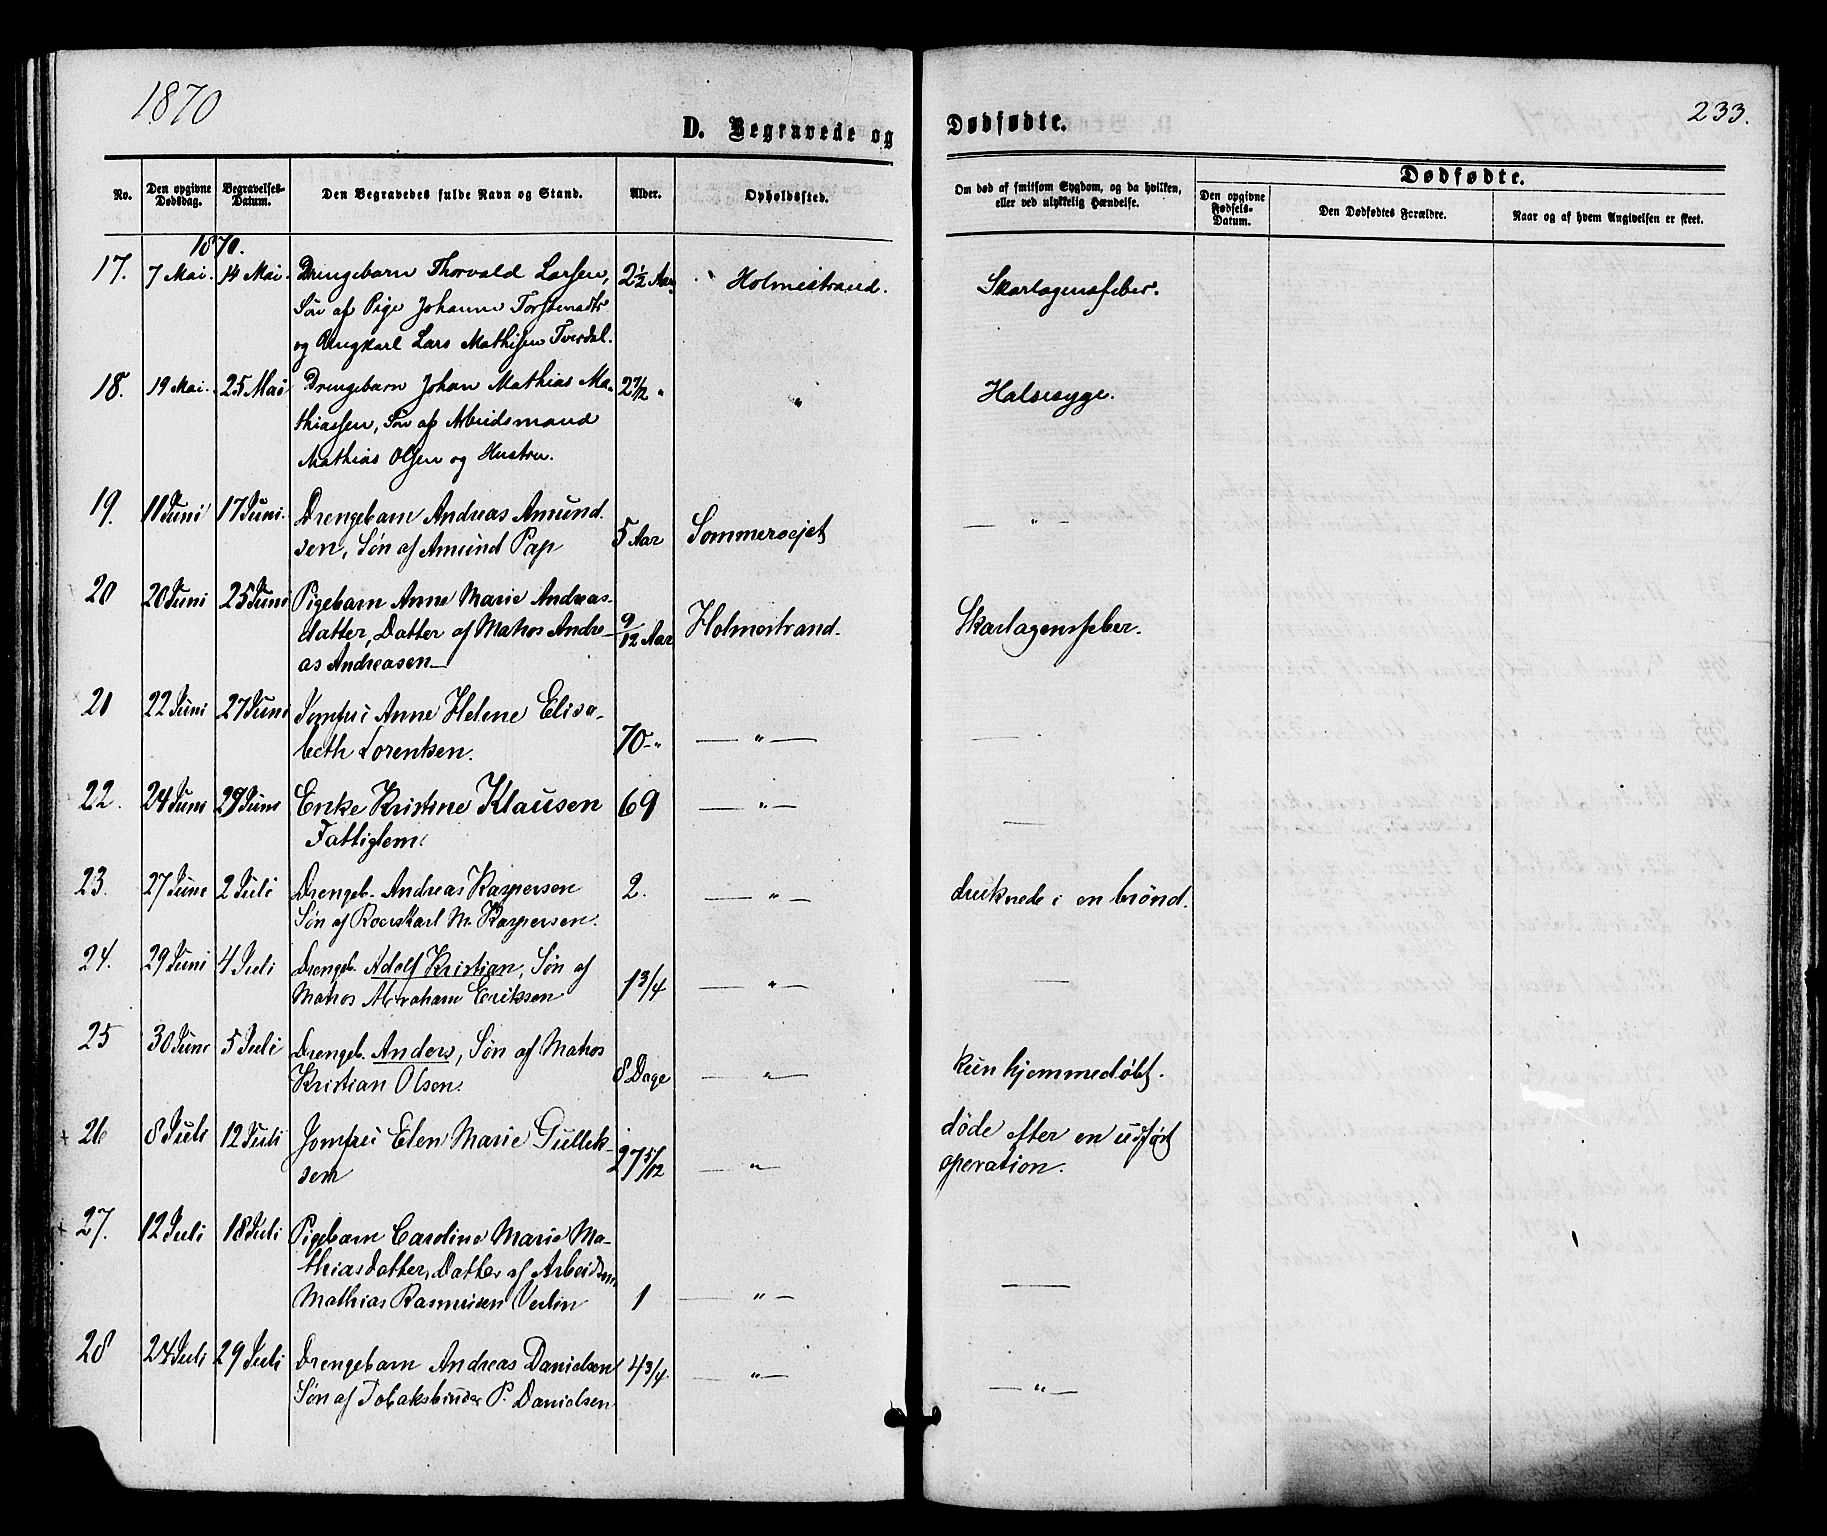 1870
233.
D. Begravede og Dødfødte.
No.
Den opgivne Dødsdag.
Begravelses-Datum.
Den Begravedes fulde Navn og Stand.
Alder.
Opholdssted.
Om død af smitsom Sygdom, og da hvilken, eller ved ulykkelig Hændelse.
Dødfødte.
Den opgivne Fødsels-Datum.
Den Dødfødtes Forældre.
Naar og af hvem Angivelsen er skeet.
1870.
17. 7 Mai. 14 Mai. Drengebarn Thorvald Larsen, 2½ Aar Holmestrand. Skarlagensfeber.
Søn af Pige Johanne
og Ungkarl Lars Mathisen Tverdal.
18. 19 Mai. 25 Mai Drengebarn Johan Mathias Ma- " Halssyge.
thiassen, Søn af Arbeidsmand
Mathias Olsen og Hustru.
19. 11 Juni 17 Juni. Drengebarn Andreas Amund
sen, Søn af Amund Pap 5 Aar — " —
20 20 Juni 25 Juni Pigebarn Anne Marie Andreas-
datter, Datter af Matros Andre- 9/12 Aar Holmestrand. Skarlagensfeber.
as Andreasen —
21 22 Juni 27 Juni Jomfru Anne Helene Elisa-
beth Lorentsen. 70-" — " —
22. 24 Juni 29 Juni Enke Kristine Klausen 69 — " — —
Fattiglem.
23. 27 Juni 2 Juli Drengeb. Andreas Kaspersen 2. — " — druknede i en brønd.
Søn af M. Kaspersen.
24. 29 Juni 4 Juli Drengeb. Adolf Kristian, Søn af
Matros Abraham Eriksen 1 3/4 — " — —
25 30 Juni 5 Juli Drengeb. Anders, Søn af Matros
Kristian Olsen. 8 Dage — " — kun hjemmedøbt.
26 8 Juli 12 Juli Jomfru Elen Marie Gullik- 27 5/12 — " — døde efter en udført
sen operation.
27. 12 Juli 18 Juli Pigebarn Caroline Marie Ma-
thiasdatter, Datter af Arbeidsm. —
Mathias Rasmusen 1 — " —
28 24 Juli 29 Juli Drengebarn Andreas Danielsen 4 3/4 — " — — " —
Søn af Tobaksbinder P. Danielsen